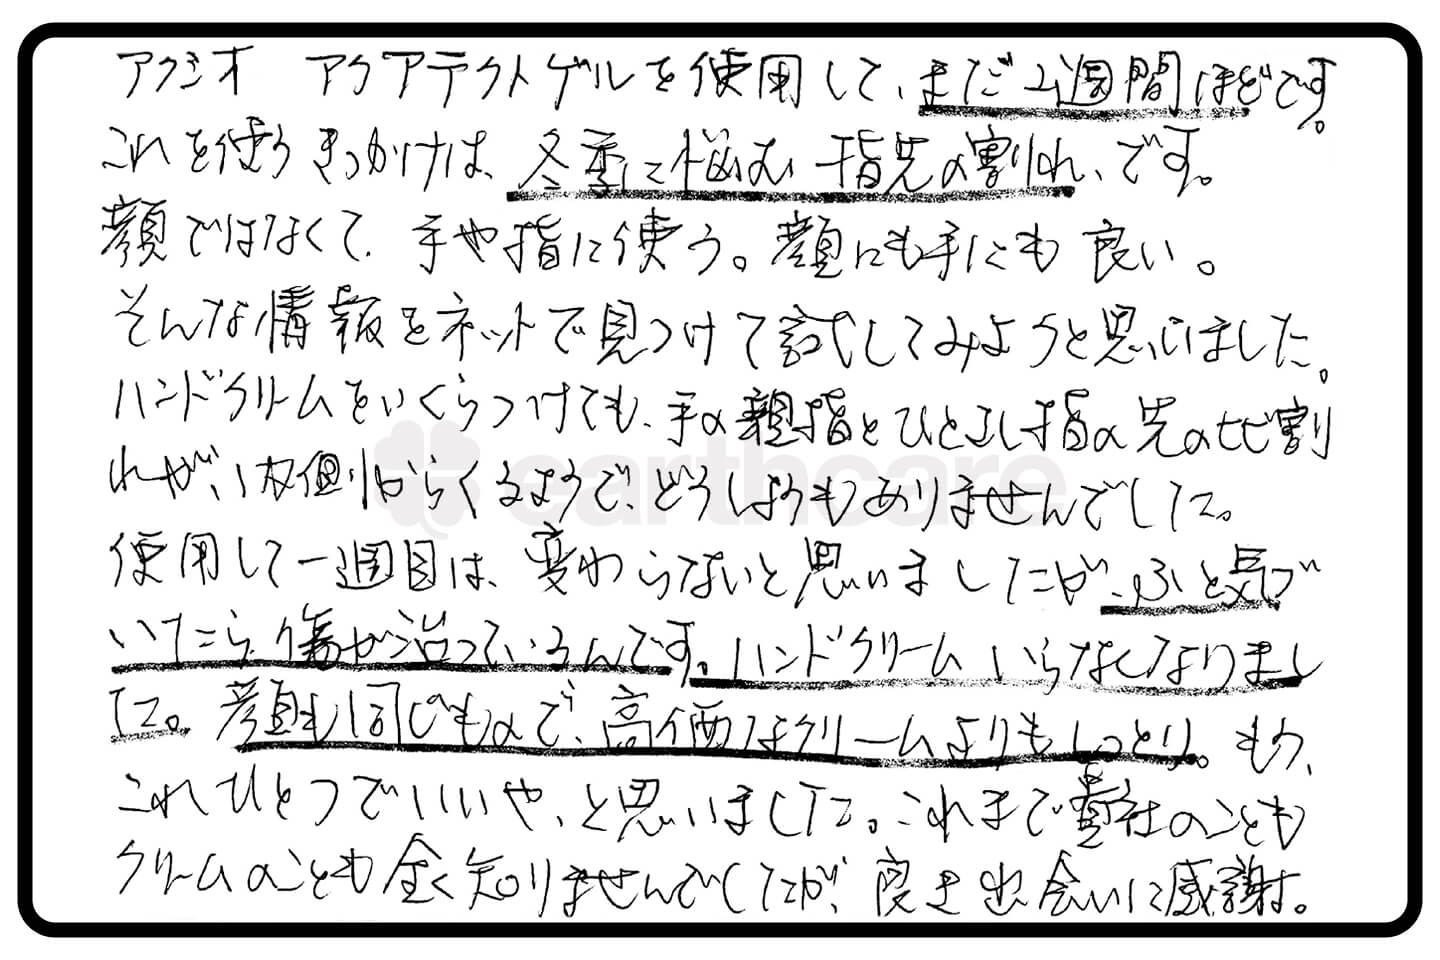 アクシオ アクアテクトゲルを使用して、まだ2週間ほどです。
これを使うきっかけは、冬季に悩む指先の割れ、です。
顔ではなくて、手や指に使う。顔にも手にも良い。
そんな情報をネットで見つけて試してみようと思いました。
ハンドクリームをいくらつけても、手の親指とひとさし指の先のヒビ割
れが、内側からくるようで、どうしようもありませんでした。
使用して一週目は、変わらないと思いましたが、ふと気づ
いたら、傷が治っているんです。ハンドクリームいらなくなりまし
た。顔も同じもので、高価なクリームよりもしっとり。もう、
これひとつでいいや、と思いました。これまで貴社のことも
クリームのことも全く知りませんでしたが、良き出会いに感謝。
earthcare